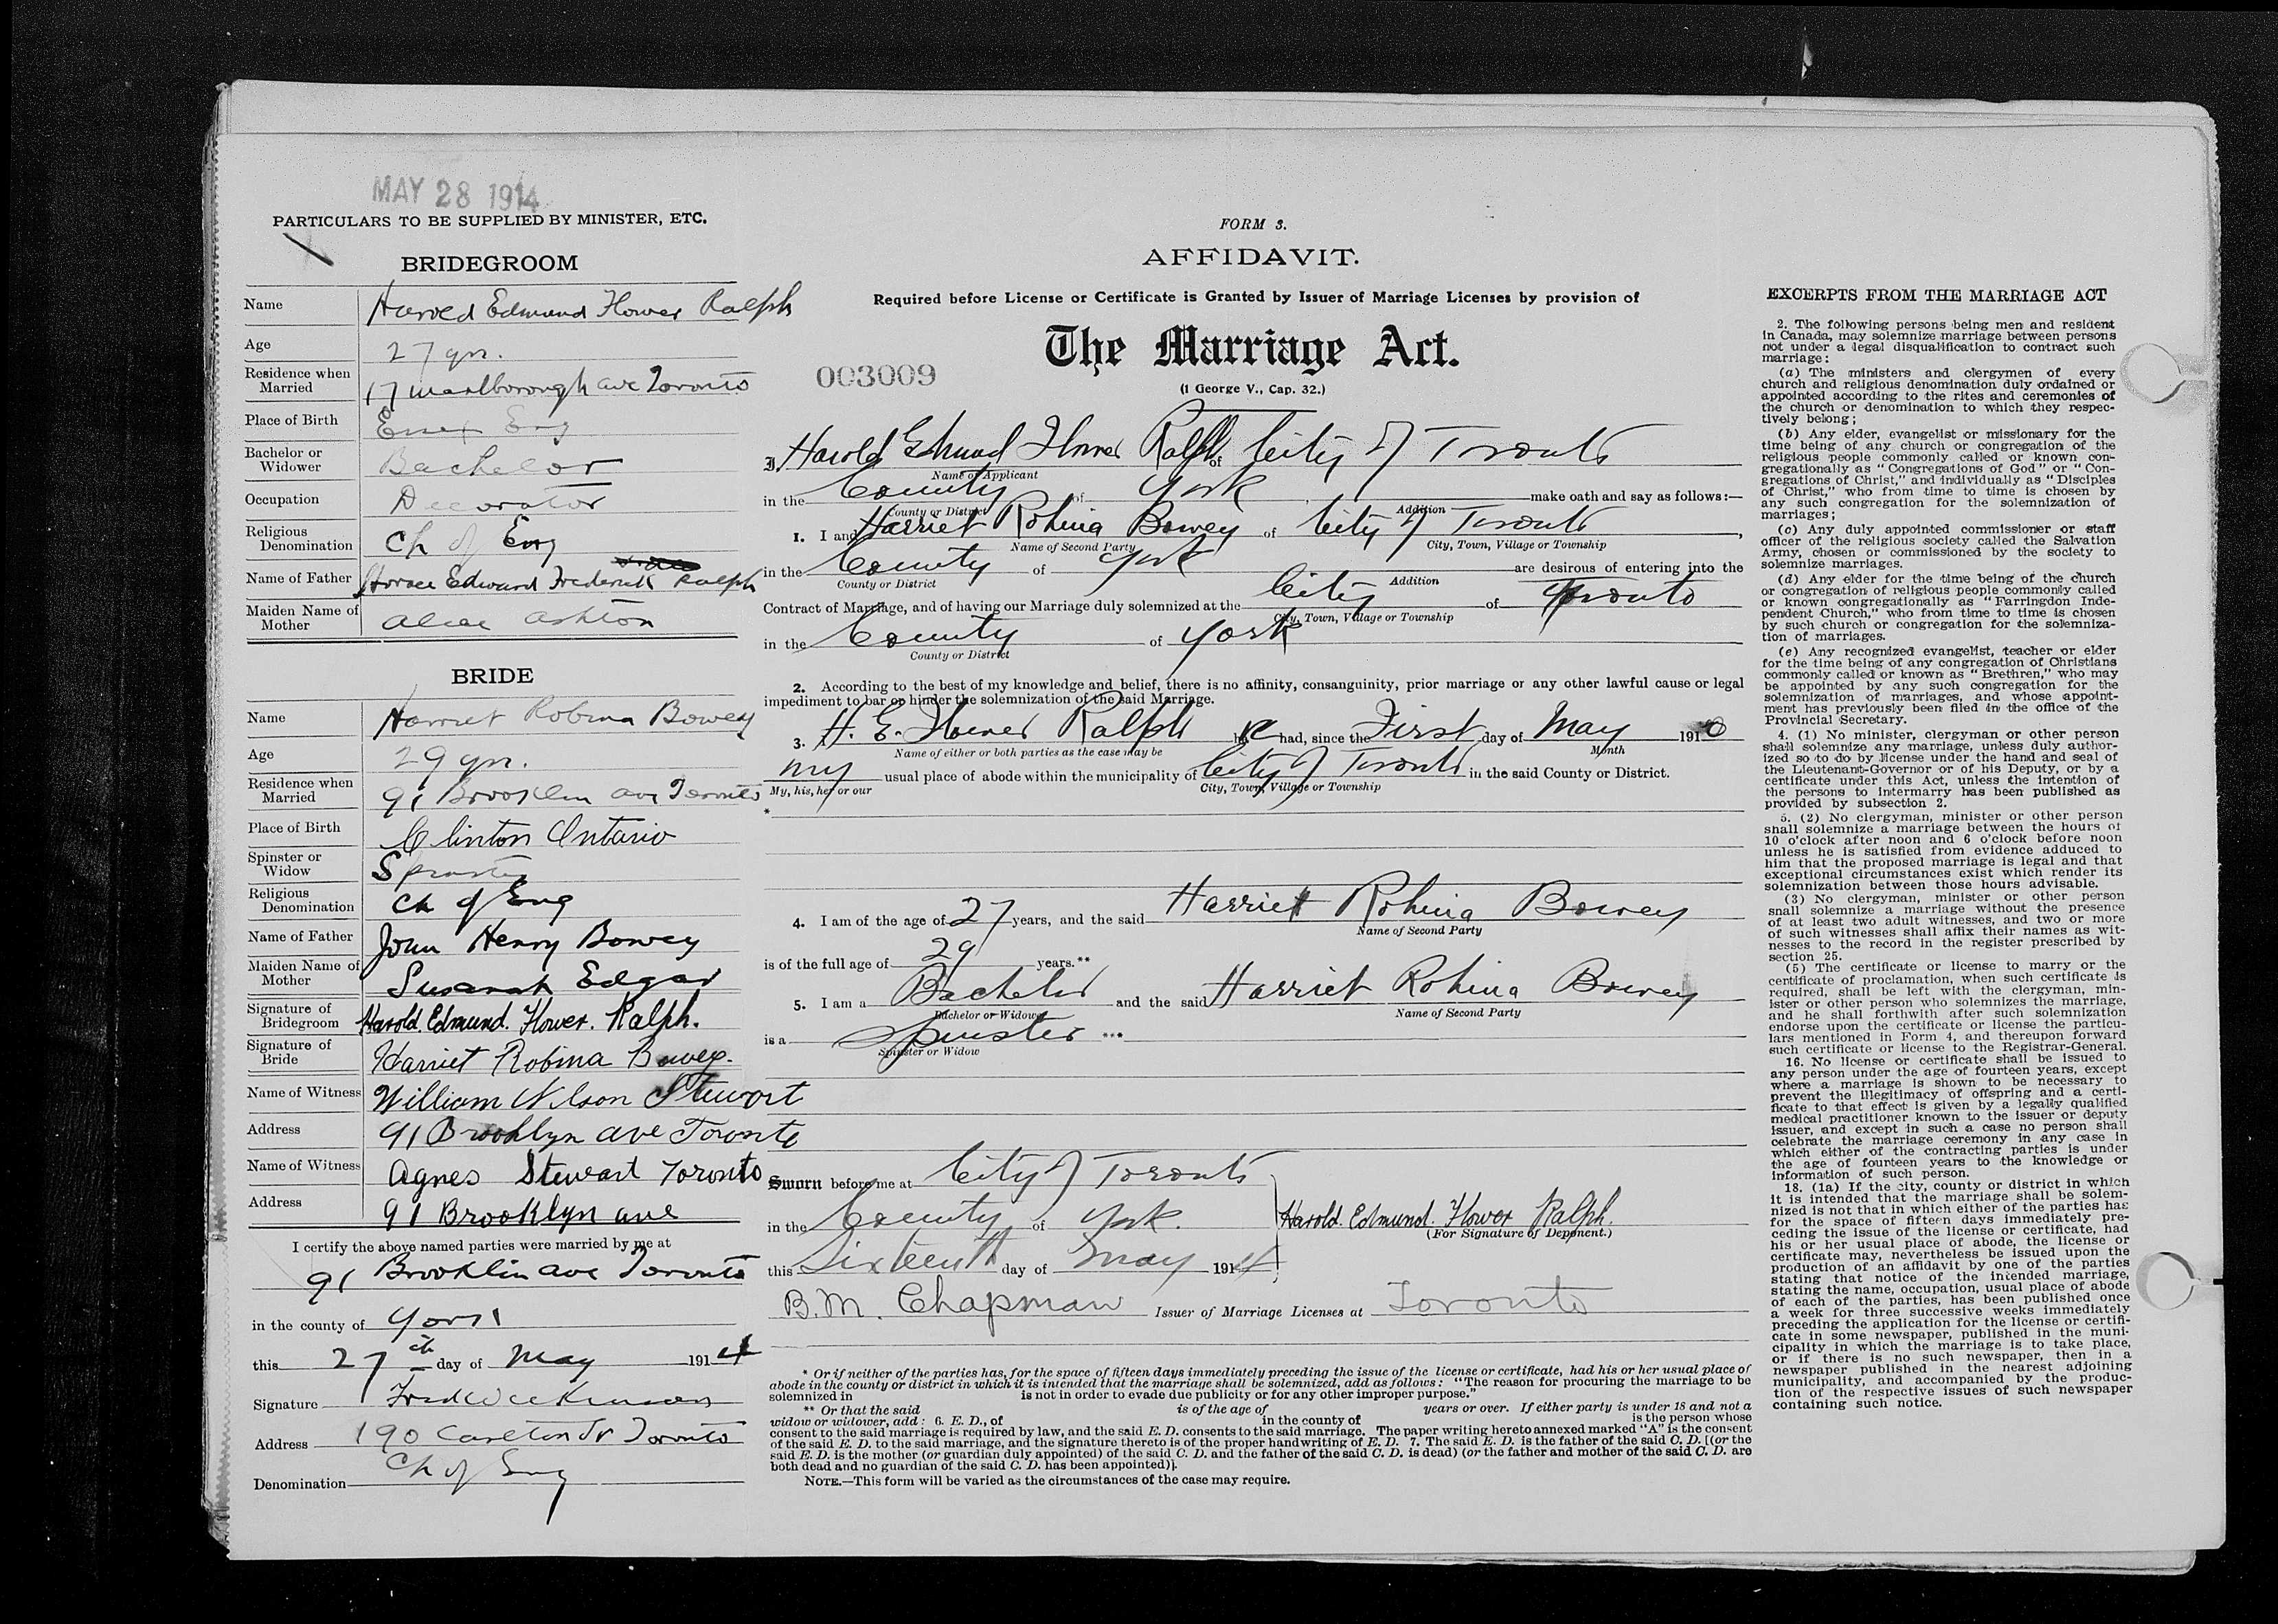 MAY 28 1914
PARTICULARS TO BE SUPPLIED BY MINISTER, ETC.
BRIDEGROOM
Name Harold Edmund Flower Ralph
Age 27 yrs.
Residence when Married 17 Marlborough ave Toronto
Place of Birth Essex Eng
Bachelor or Widower Bachelor
Occupation Decorator
Religious Denomination Ch of Eng
Name of Father Horace Edward Frederick Ralph
Maiden Name of Mother Alice Ashton
BRIDE
Name Harriet Robina Bowey
Age 29 yrs.
Residence when Married 91 Brooklin ave Toronto
Place of Birth Clinton Ontario
Spinster or Widow Spinster
Religious Denomination Ch of Eng
Name of Father John Henry Bowey
Maiden Name of Mother Susanah Edgar
Signature of Bridegroom Harold. Edmund. Flower. Ralph.
Signature of Bride Harriet Robina Bowey.
Name of Witness William Nilson Stewart
Address 91 Brooklyn ave Toronto
Name of Witness Agnes Stewart Toronto
Address 91 Brooklyn ave
I certify the above named parties were married by me at
91 Brooklin ave Toronto
in the county of York
this 27th day of May 1914
Signature
Address 190 Carlton St Toronto
Denomination Ch of Eng
FORM 3.
AFFIDAVIT.
Required before License or Certificate is Granted by Issuer of Marriage Licenses by provision of
The Marriage Act.
003009
(1 George V., Cap. 32.)
I, Harold Edmund Flower Ralph of City of Toronto
Name of Applicant
in the County of York, make oath and say as follows:—
County or District Addition
1. I and Harriet Robina Bowey of City of Toronto,
Name of Second Party City, Town, Village or Township
in the County of York are desirous of entering into the
County or District Addition
Contract of Marriage, and of having our Marriage duly solemnized at the City of Toronto
City, Town, Village or Township
in the County of York
County or District
2. According to the best of my knowledge and belief, there is no affinity, consanguinity, prior marriage or any other lawful cause or legal
impediment to bar or hinder the solemnization of the said Marriage.
3. H. E. Flower Ralph had, since the First day of May 1910
Name of either or both parties as the case may be Month
my usual place of abode within the municipality of City of Toronto in the said County or District.
My, his, her or our City, Town, Village or Township
*
4. I am of the age of 27 years, and the said Harriet Robina Bowey
Name of Second Party
is of the full age of 29 years.**
5. I am a Bachelor and the said Harriet Robina Bowey
Bachelor or Widower Name of Second Party
is a Spinster ***
Spinster or Widow
Sworn before me at City of Toronto
in the County of York. Harold. Edmund. Flower Ralph.
(For Signature of Deponent.)
this Sixteenth day of May 1914
B. M. Chapman Issuer of Marriage Licenses at Toronto
* Or if neither of the parties has, for the space of fifteen days immediately preceding the issue of the license or certificate, had his or her usual place of
abode in the county or district in which it is intended that the marriage shall be solemnized, add as follows: "The reason for procuring the marriage to be
solemnized in is not in order to evade due publicity or for any other improper purpose."
** Or that the said is of the age of years or over. If either party is under 18 and not a
widow or widower, add: 6. E. D., of in the county of is the person whose
consent to the said marriage is required by law, and the said E. D. consents to the said marriage. The paper writing hereto annexed marked "A" is the consent
of the said E. D. to the said marriage, and the signature thereto is of the proper handwriting of E. D. 7. The said E. D. is the father of the said C. D. [(or the
said E. D. is the mother (or guardian duly appointed) of the said C. D. and the father of the said C. D. is dead) (or the father and mother of the said C. D. are
both dead and no guardian of the said C. D. has been appointed)].
NOTE.—This form will be varied as the circumstances of the case may require.
EXCERPTS FROM THE MARRIAGE ACT
2. The following persons being men and resident
in Canada, may solemnize marriage between persons
not under a legal disqualification to contract such
marriage:
(a) The ministers and clergymen of every
church and religious denomination duly ordained or
appointed according to the rites and ceremonies of
the church or denomination to which they respec-
tively belong;
(b) Any elder, evangelist or missionary for the
time being of any church or congregation of the
religious people commonly called or known con-
gregationally as "Congregations of God" or "Con-
gregations of Christ," and individually as "Disciples
of Christ," who from time to time is chosen by
any such congregation for the solemnization of
marriages;
(c) Any duly appointed commissioner or staff
officer of the religious society called the Salvation
Army, chosen or commissioned by the society to
solemnize marriages.
(d) Any elder for the time being of the church
or congregation of religious people commonly called
or known congregationally as "Farringdon Inde-
pendent Church," who from time to time is chosen
by such church or congregation for the solemniza-
tion of marriages.
(e) Any recognized evangelist, teacher or elder
for the time being of any congregation of Christians
commonly called or known as "Brethren," who may
be appointed by any such congregation for the
solemnization of marriages, and whose appoint-
ment has previously been filed in the office of the
Provincial Secretary.
4. (1) No minister, clergyman or other person
shall solemnize any marriage, unless duly author-
ized so to do by license under the hand and seal of
the Lieutenant-Governor or of his Deputy, or by a
certificate under this Act, unless the intention of
the persons to intermarry has been published as
provided by subsection 2.
5. (2) No clergyman, minister or other person
shall solemnize a marriage between the hours of
10 o'clock after noon and 6 o'clock before noon
unless he is satisfied from evidence adduced to
him that the proposed marriage is legal and that
exceptional circumstances exist which render its
solemnization between those hours advisable.
(3) No clergyman, minister or other person
shall solemnize a marriage without the presence
of at least two adult witnesses, and two or more
of such witnesses shall affix their names as wit-
nesses to the record in the register prescribed by
section 25.
(5) The certificate or license to marry or the
certificate of proclamation, when such certificate is
required, shall be left with the clergyman, min-
ister or other person who solemnizes the marriage,
and he shall forthwith after such solemnization
endorse upon the certificate or license the particu-
lars mentioned in Form 4, and thereupon forward
such certificate or license to the Registrar-General.
16. No license or certificate shall be issued to
any person under the age of fourteen years, except
where a marriage is shown to be necessary to
prevent the illegitimacy of offspring and a certi-
ficate to that effect is given by a legally qualified
medical practitioner known to the issuer or deputy
issuer, and except in such a case no person shall
celebrate the marriage ceremony in any case in
which either of the contracting parties is under
the age of fourteen years to the knowledge or
information of such person.
18. (1a) If the city, county or district in which
it is intended that the marriage shall be solem-
nized is not that in which either of the parties has
for the space of fifteen days immediately pre-
ceding the issue of the license or certificate, had
his or her usual place of abode, the license or
certificate may, nevertheless be issued upon the
production of an affidavit by one of the parties
stating that notice of the intended marriage,
stating the name, occupation, usual place of abode
of each of the parties, has been published once
a week for three successive weeks immediately
preceding the application for the license or certifi-
cate in some newspaper, published in the muni-
cipality in which the marriage is to take place,
or if there is no such newspaper, then in a
newspaper published in the nearest adjoining
municipality, and accompanied by the produc-
tion of the respective issues of such newspaper
containing such notice.